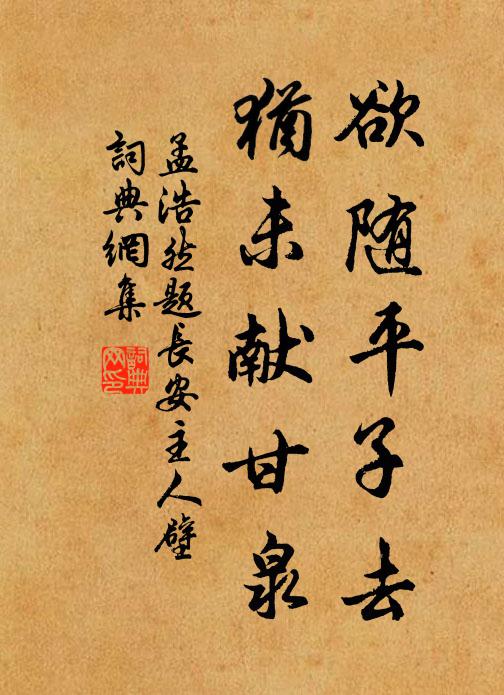 欲随平子去
猶未献甘泉
孟浩然题長安主人壁
詞典網集
詞典网印